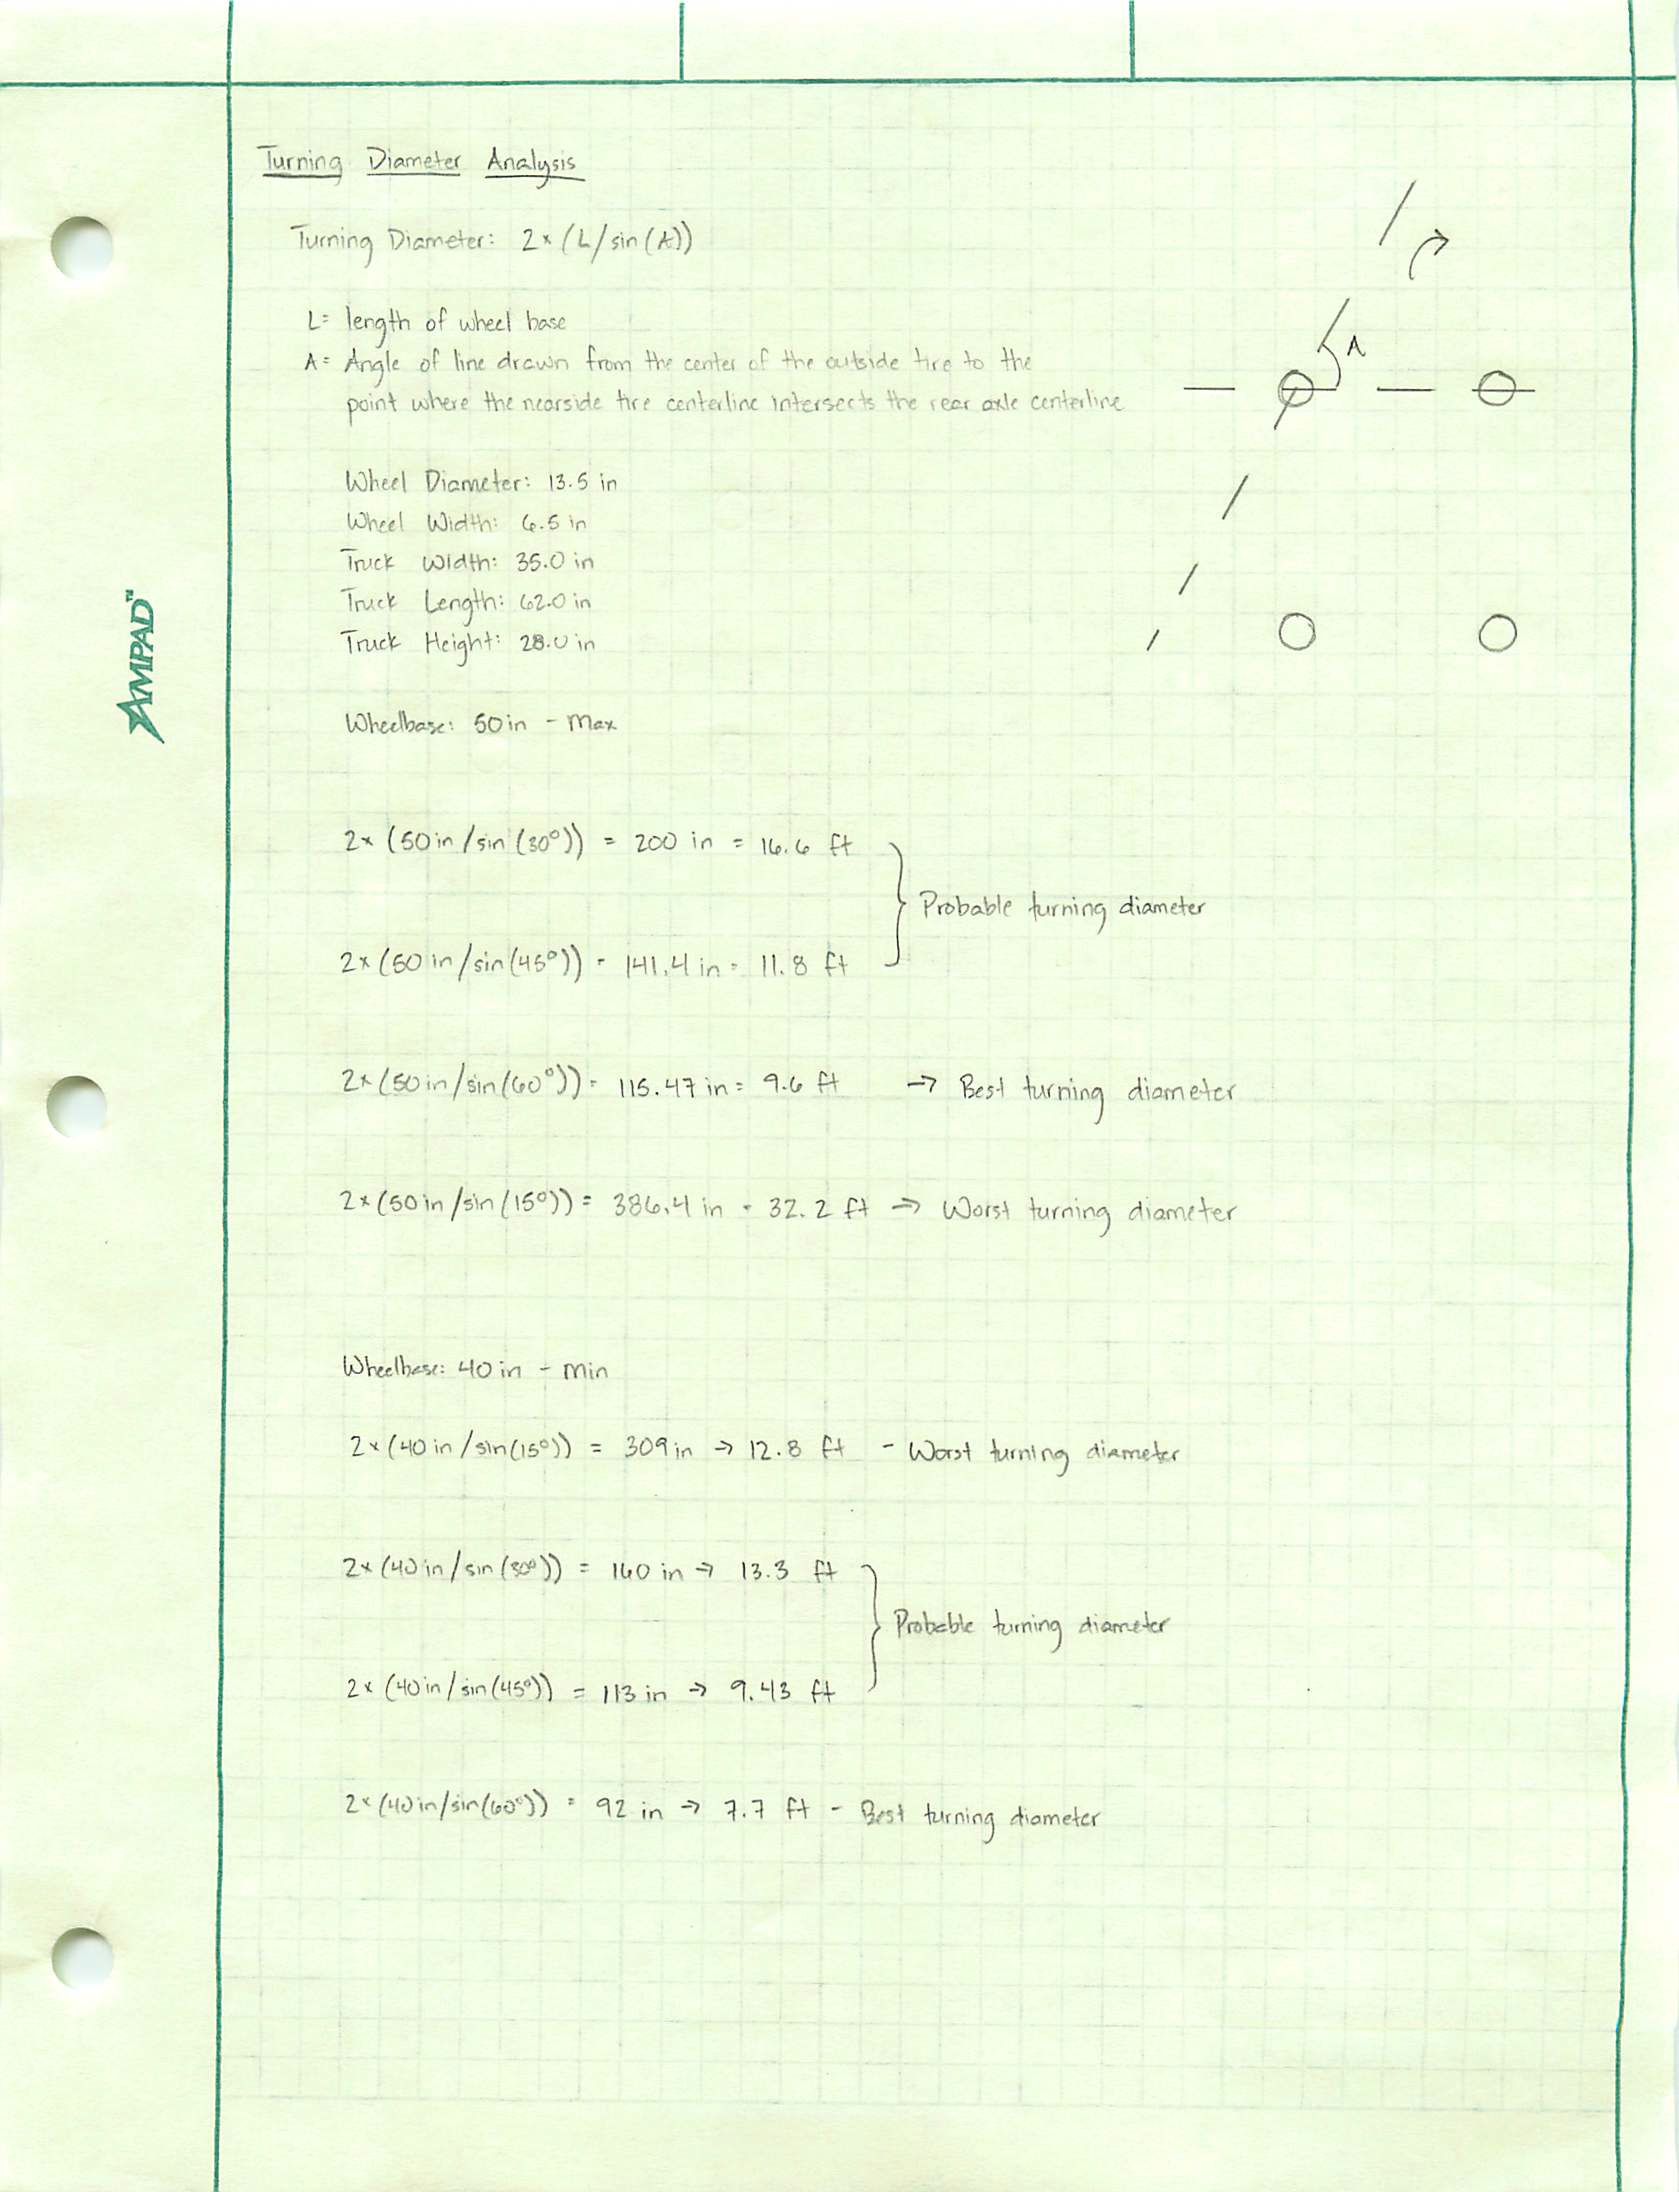 Turning Diameter Analysis
Turning Diameter: 2×(L/sin(A))
L= length of wheel base
A= Angle of line drawn from the center of the outside tire to the
point where the nearside tire centerline intersects the rear axle centerline
A
Wheel Diameter: 13.5 in
Wheel Width: 6.5 in
Truck Width: 35.0 in
Truck Length: 62.0 in
Truck Height: 28.0 in
AMPAD™
Wheelbase: 50in - Max
2×(50in/sin(30°)) = 200 in = 16.6 ft
Probable turning diameter
2×(50in/sin(45°)) = 141.4 in = 11.8 ft
2×(50in/sin(60°)) = 115.47 in = 9.6 ft → Best turning diameter
2×(50in/sin(15°)) = 386.4 in = 32.2 ft → Worst turning diameter
Wheelbase: 40in - Min
2×(40in/sin(15°)) = 309in → 12.8 ft - Worst turning diameter
2×(40in/sin(30°)) = 160 in → 13.3 ft
Probable turning diameter
2×(40in/sin(45°)) = 113 in → 9.43 ft
2×(40in/sin(60°)) = 92 in → 7.7 ft - Best turning diameter